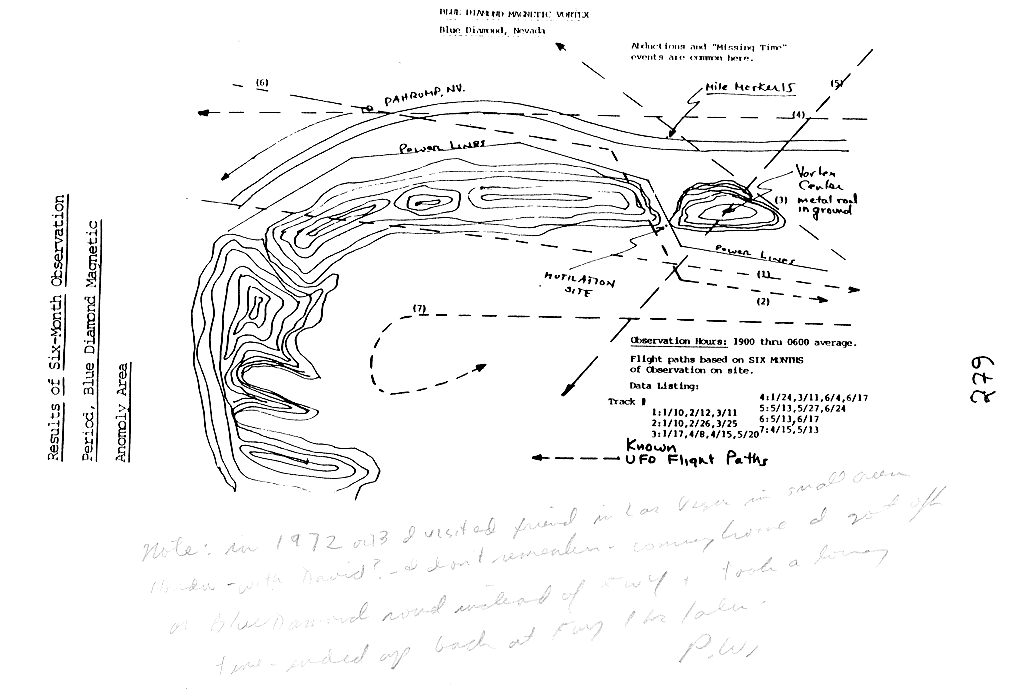 BLUE DIAMOND MAGNETIC VORTEX
Blue Diamond, Nevada
Abductions and "Missing Time"
events are common here.
Mile Marker 15
(6)
(5)
PAHRUMP, NV.
(4)
Power Lines
Vortex
Center
(3) metal rod
in ground
Power Lines
MUTILATION
SITE
(1)
(2)
(7)
Results of Six-Month Observation
Period, Blue Diamond Magnetic
Anomoly Area
Observation Hours: 1900 thru 0600 average.
Flight paths based on SIX MONTHS
of Observation on site.
Data Listing:
Track #
1:1/10,2/12,3/11
2:1/10,2/26,3/25
3:1/17,4/8,4/15,5/20
4:1/24,3/11,6/4,6/17
5:5/13,5/27,6/24
6:5/13,6/17
7:4/15,5/13
Known
UFO Flight Paths
279
Note: in 1972 or 3 I visited friend in Las Vegas in small green
Honda - with David? - I don't remember - coming home I got off
at Blue Diamond road instead of Fwy + took a long
time - ended up back at Fwy 1 hr later.
P.W.